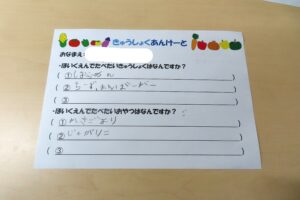 きゅうしょくあんけーと
おなまえ:
・ほいくえんでたべたいきゅうしょくはなんですか?
( ①
( ② ちーずはんばーがー )
( ③ )
・ほいくえんでたべたいおやつはなんですか?
( ①
( ② じゃがりこ )
( ③ )